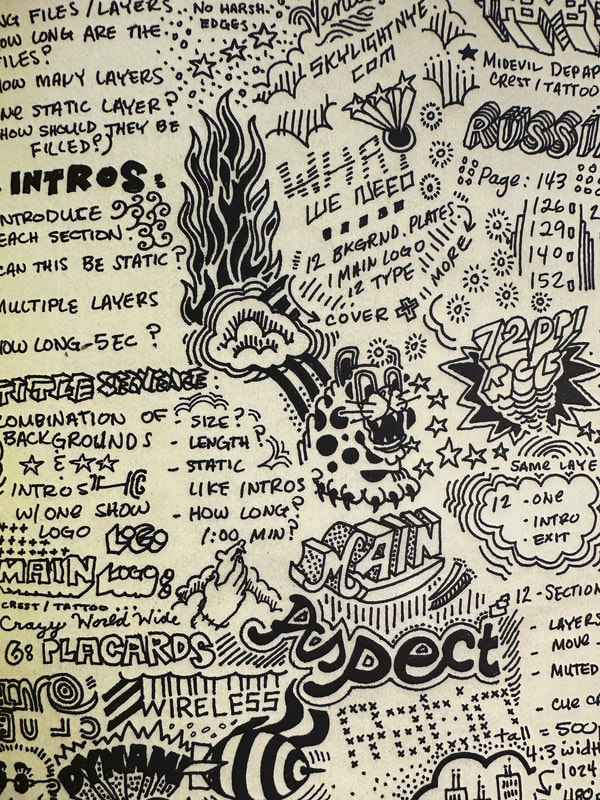 NG FILES/LAYERS
OW LONG ARE THE
FILES?
HOW MANY LAYERS
ONE STATIC LAYER?
(HOW SHOULD THEY BE
FILLED?)
INTROS:
INTRODUCE
EACH SECTION.
CAN THIS BE STATIC?
MULTIPLE LAYERS
HOW LONG-5EC?
TITLE SEQUENCE:
COMBINATION OF
BACKGROUNDS
&
INTROS
W/ONE SHOW
LOGO LOGO
MAIN LOGO:
CREST/TATTOO...
Crazy World Wide
6: PLACARDS
NO HARSH.
EDGES.
SKYLIGHTNYE.
COM
WHAT
WE NEED
12 BKGRND. PLATES
1 MAIN LOGO
12 TYPE
MORE
COVER
- SIZE?
- LENGTH?
- STATIC
LIKE INTROS
- HOW LONG?
1:00 MIN?
MAIN
Aspect
WIRELESS
DYNAM
MIDEVIL DEPA
CREST/TATTOO
RUSSI
Page: 143
126
129
140
152
72DPI
- SAME LAYE
12 - ONE
- INTRO
- EXIT
12-SECTION
- LAYERS
MOVE
- MUTED
- CUE
tall = 500
4:3 width
1024